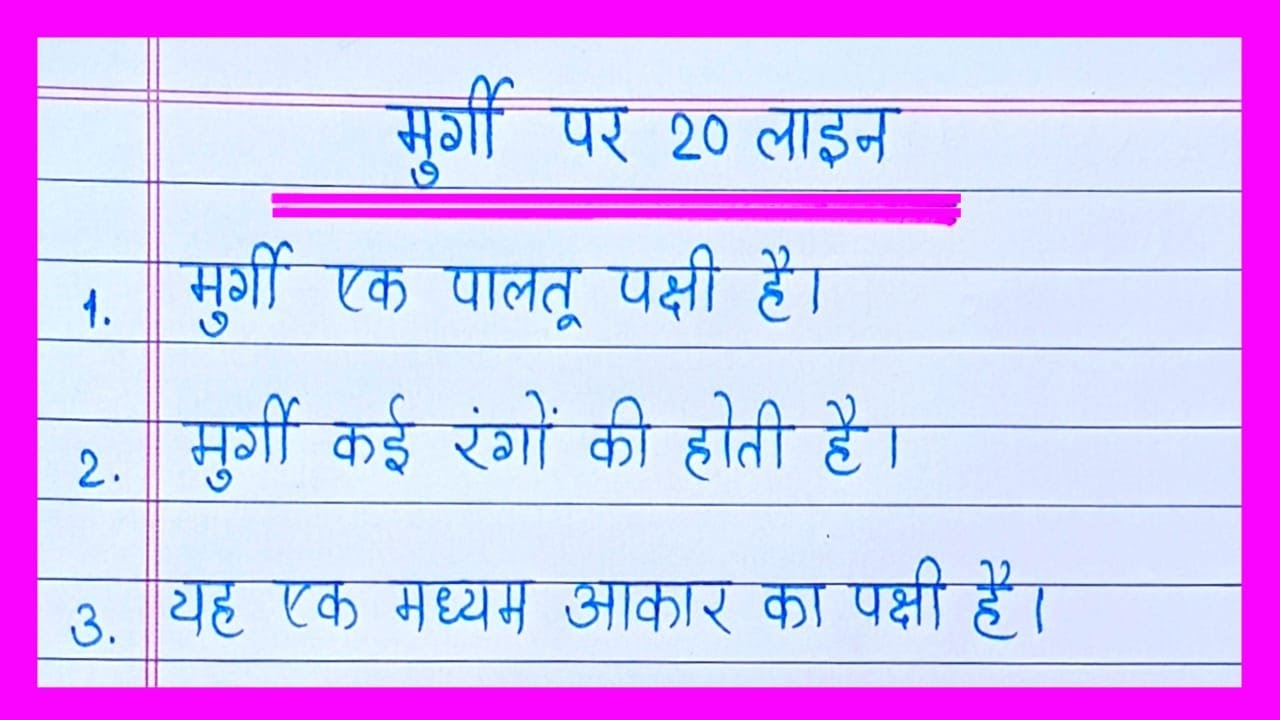 मुर्गी पर 20 लाइन
1. मुर्गी एक पालतू पक्षी है।
2. मुर्गी कई रंगों की होती है।
3. यह एक मध्यम आकार का पक्षी है।